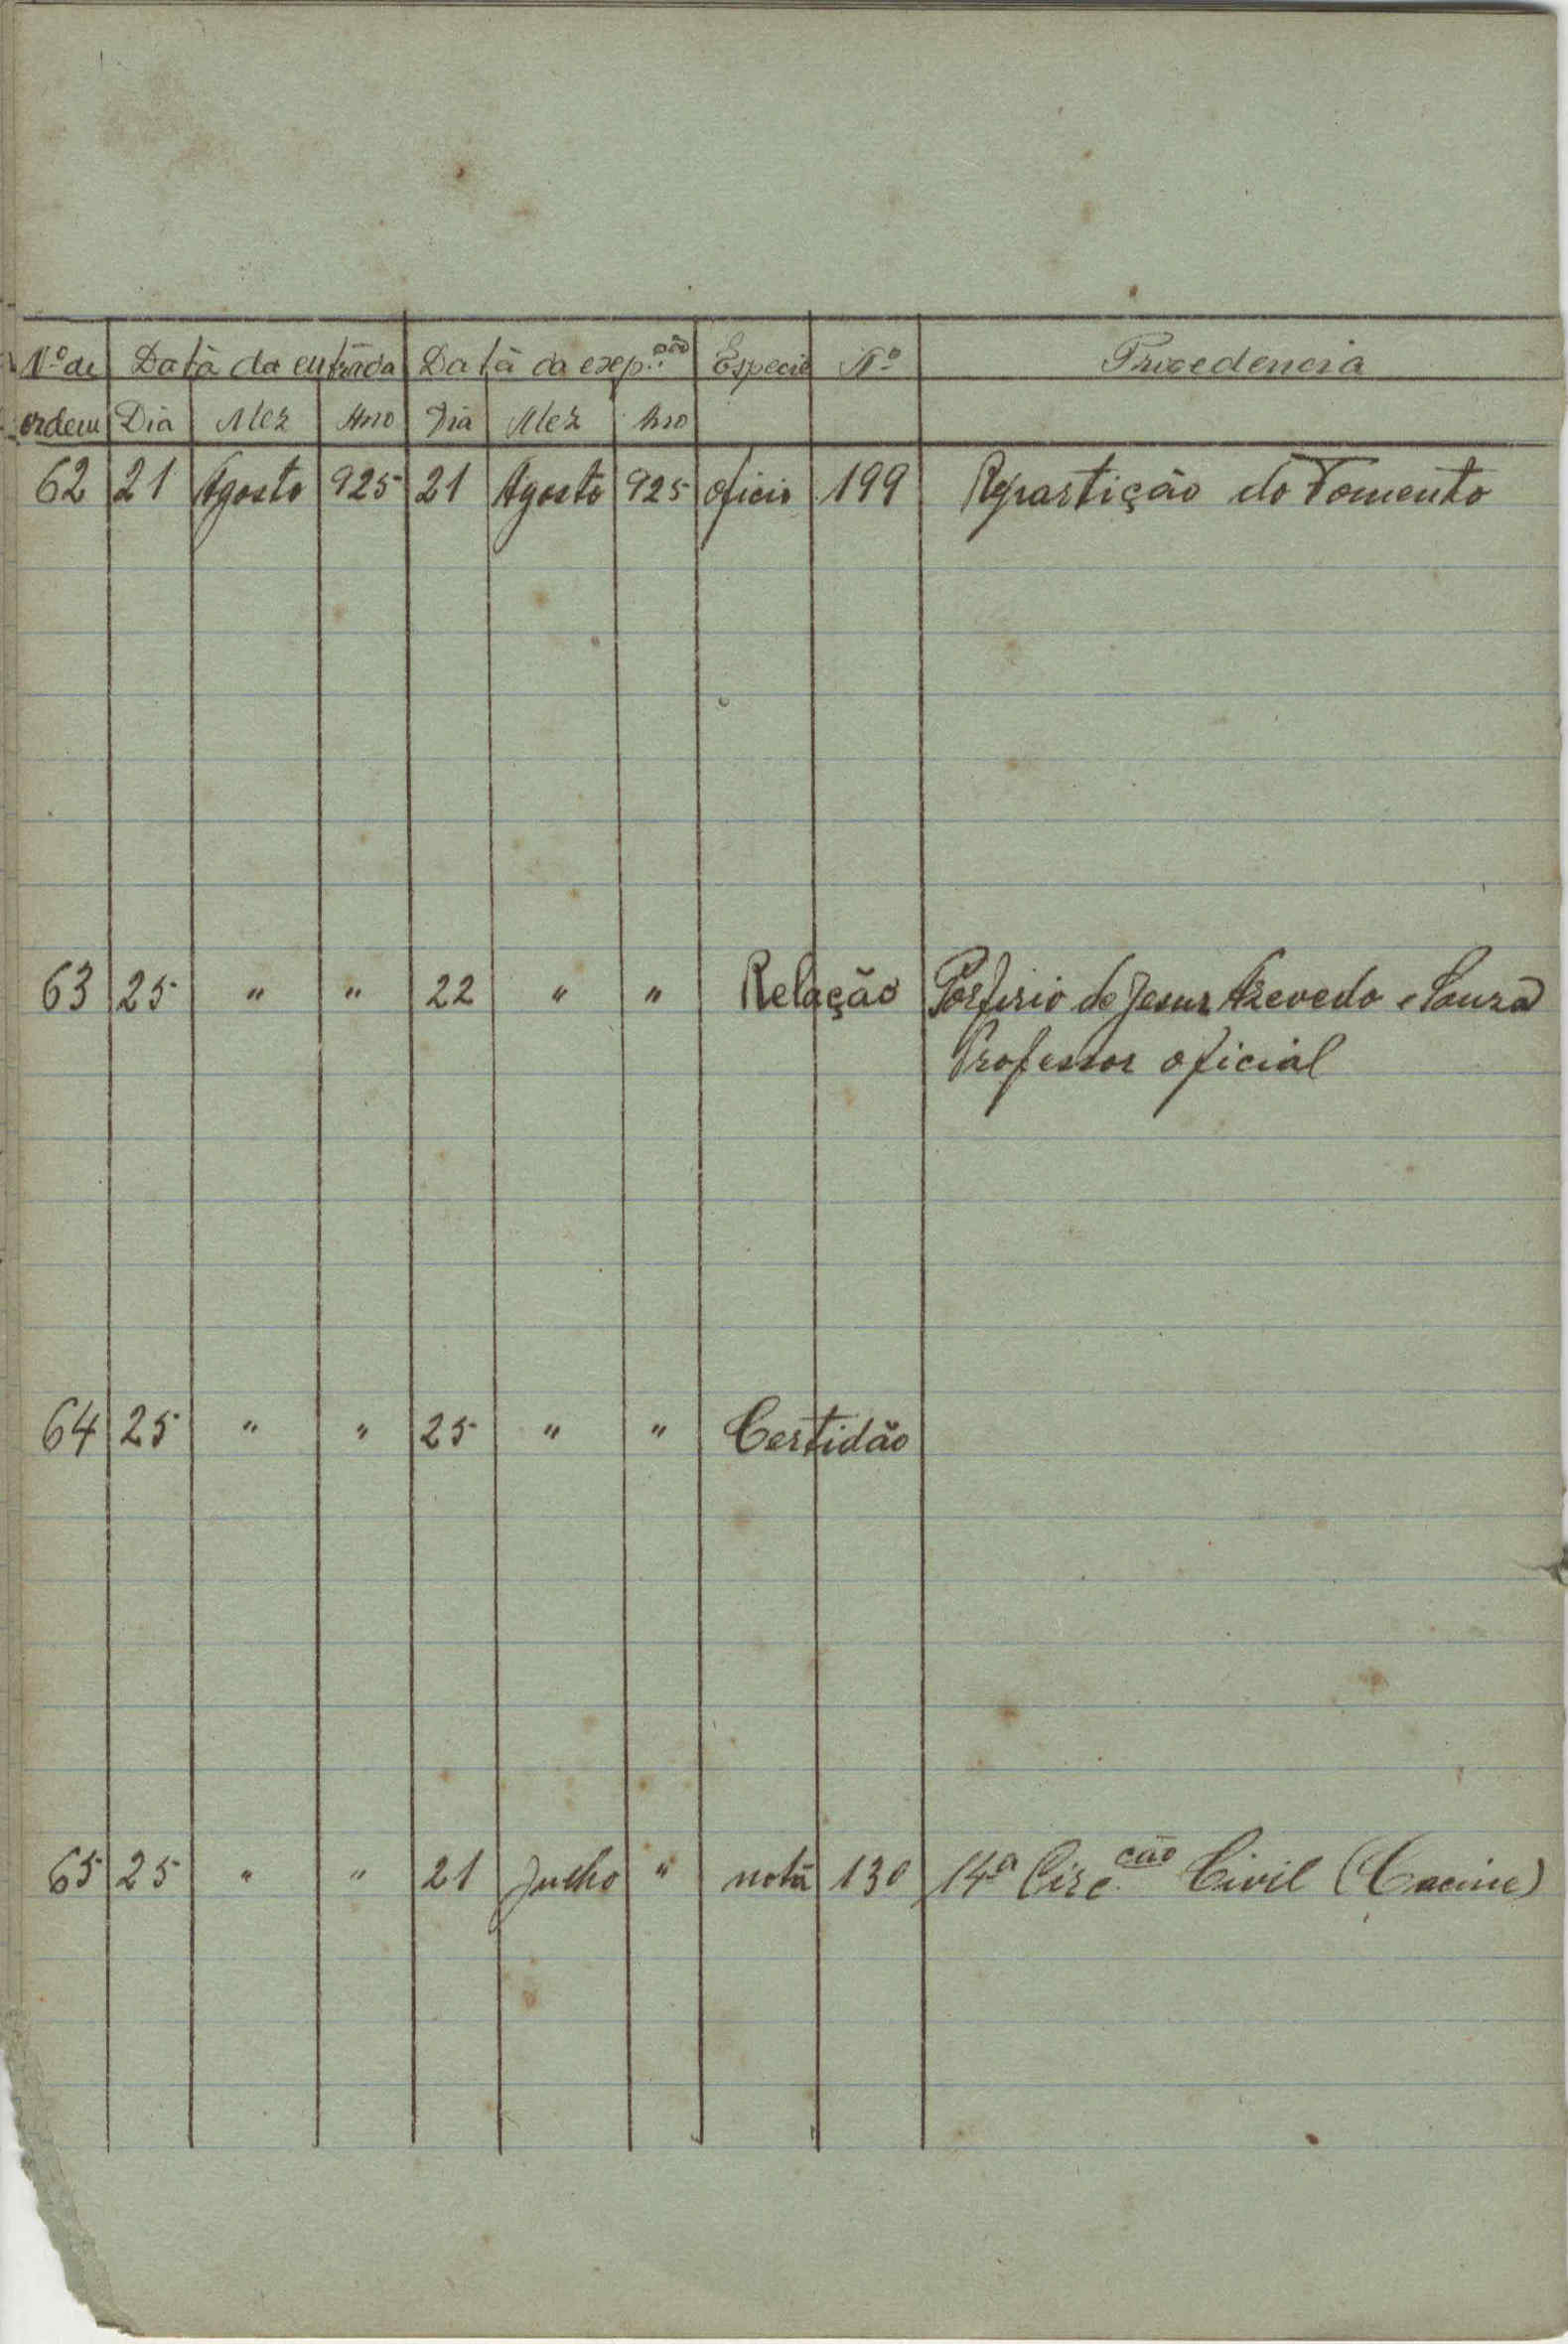 Nº de Data da entrada Data da exep.ção Especie Nº Procedencia
ordem Dia Mez Ano Dia Mez Ano
62 21 Agosto 925 21 Agosto 925 oficio 199 Repartição do Fomento
63 25 " " 22 " " Relação Porfirio de Jesus Azevedo e Souza
Professor oficial
64 25 " " 25 " " Certidão
65 25 " " 21 Julho " nota 130 14ª Circ.cão Civil (Cacine)